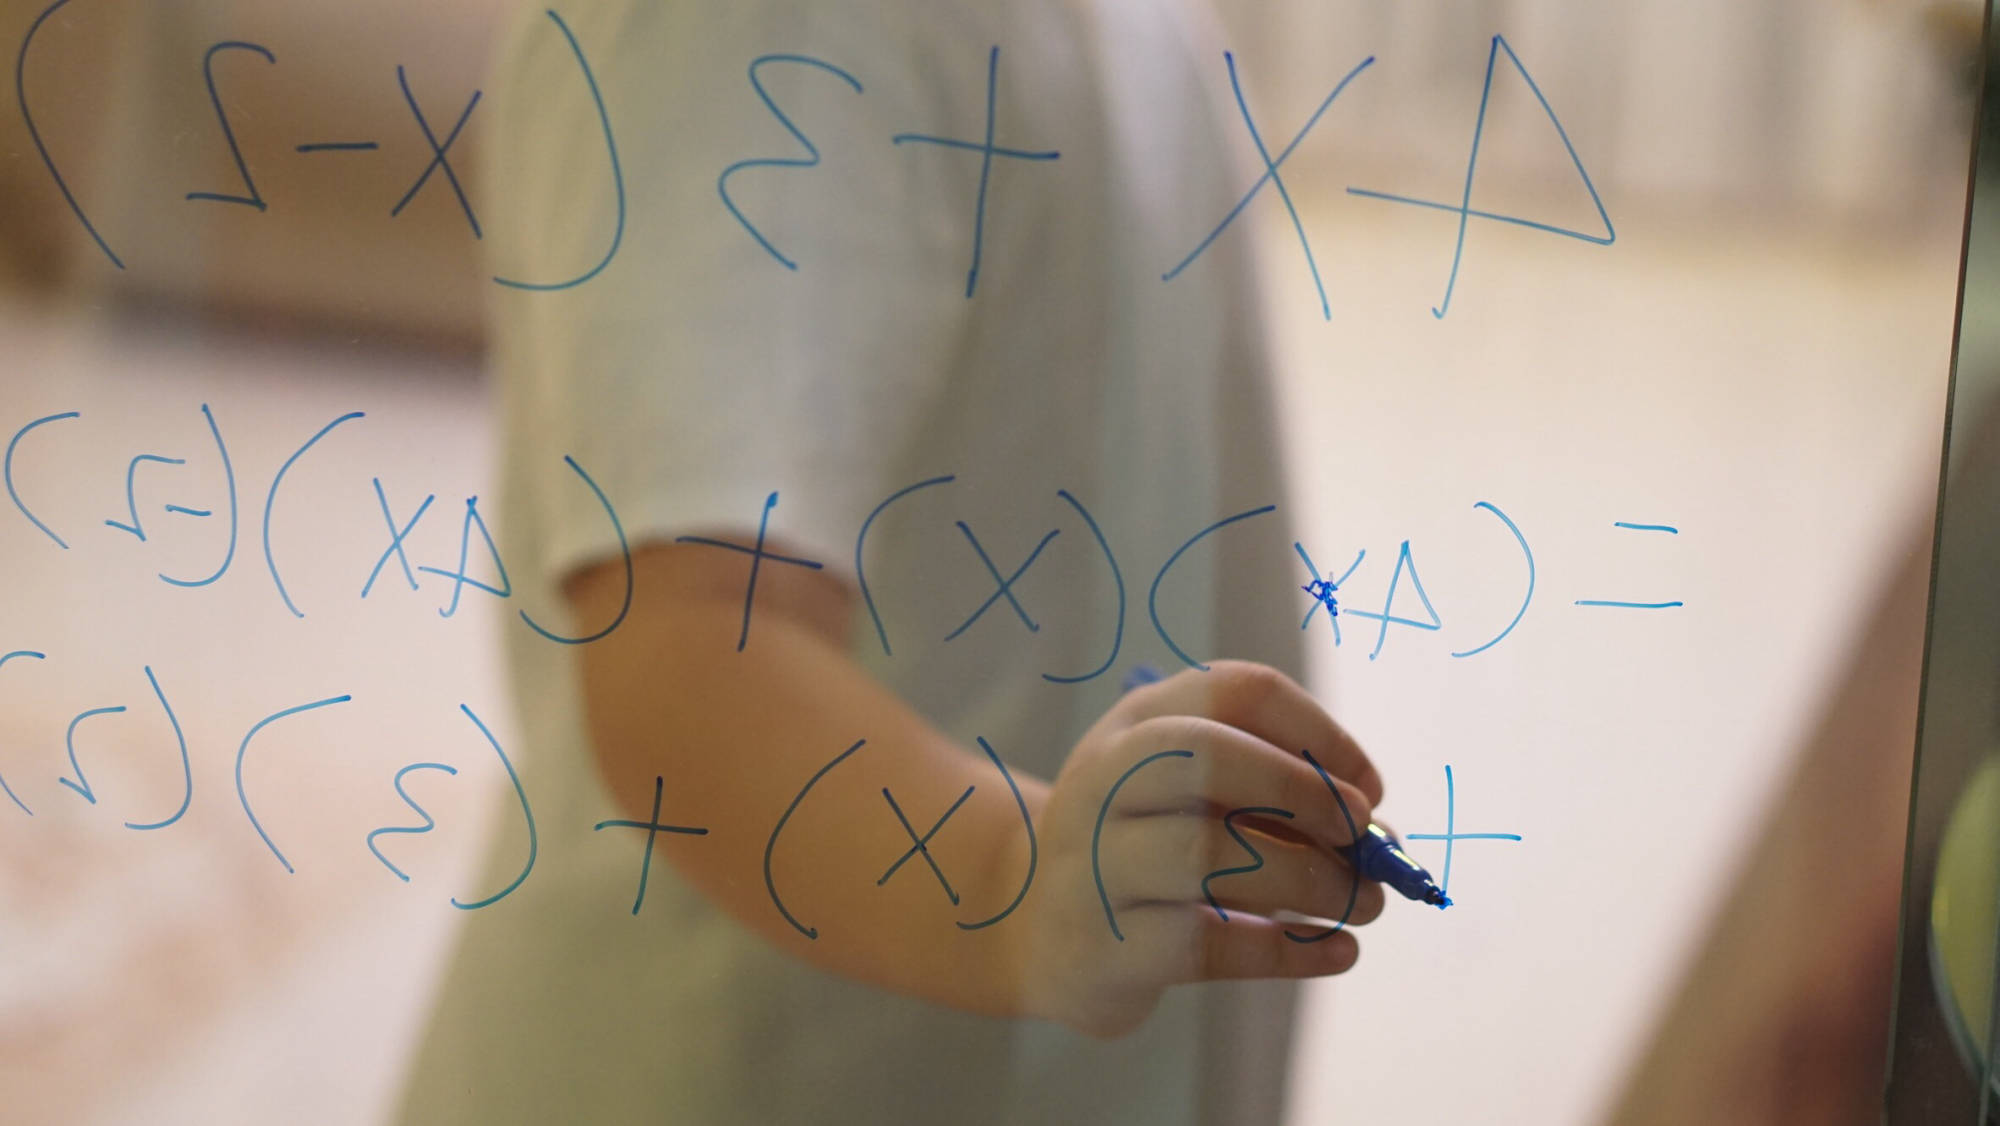 4X + 3 (X - 2)
= (4X) (X) + (4X) (-2)
+ (3) (X) + (3) (2)